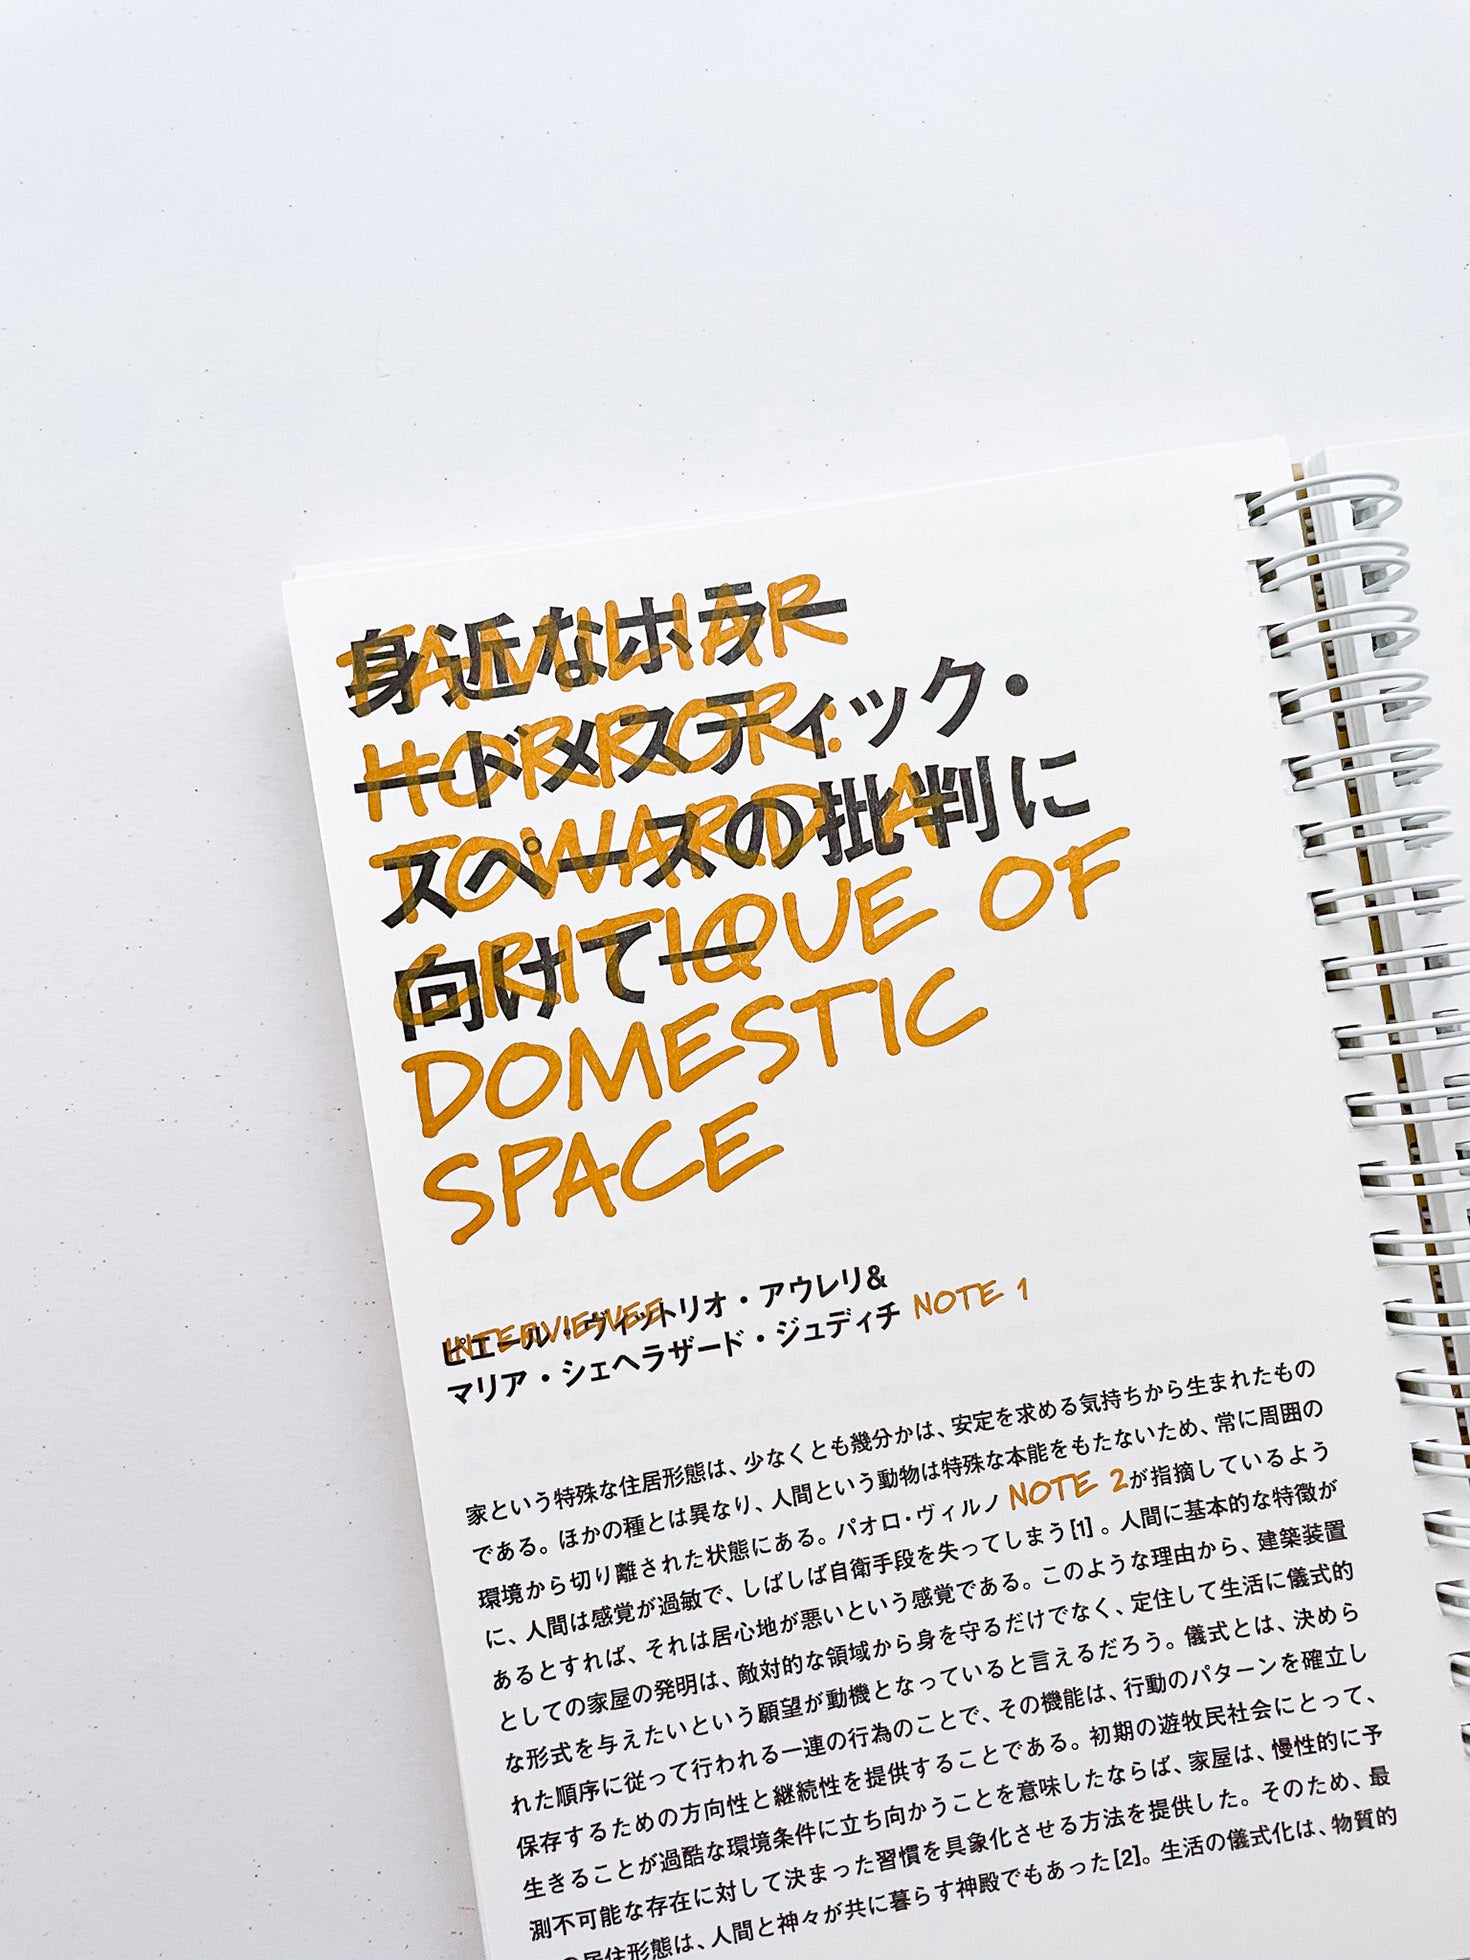 身近なホラー
FAMILIAR
ードメスティック・
HORROR:
スペースの批判に
TOWARD A
向けてー
CRITIQUE OF
DOMESTIC
SPACE
INTERVIEWEE
ピエール・ヴィットリオ・アウレリ&
マリア・シェヘラザード・ジュディチ NOTE 1
家という特殊な住居形態は、少なくとも幾分かは、安定を求める気持ちから生まれたもの
である。ほかの種とは異なり、人間という動物は特殊な本能をもたないため、常に周囲の
環境から切り離された状態にある。パオロ・ヴィルノ NOTE 2が指摘しているよう
に、人間は感覚が過敏で、しばしば自衛手段を失ってしまう[1]。人間に基本的な特徴が
あるとすれば、それは居心地が悪いという感覚である。このような理由から、建築装置
としての家屋の発明は、敵対的な領域から身を守るだけでなく、定住して生活に儀式的
な形式を与えたいという願望が動機となっていると言えるだろう。儀式とは、決めら
れた順序に従って行われる一連の行為のことで、その機能は、行動のパターンを確立し
保存するための方向性と継続性を提供することである。初期の遊牧民社会にとって、
生きることが過酷な環境条件に立ち向かうことを意味したならば、家屋は、慢性的に予
測不可能な存在に対して決まった習慣を具象化させる方法を提供した。そのため、最
の居住形態は、人間と神々が共に暮らす神殿でもあった[2]。生活の儀式化は、物質的